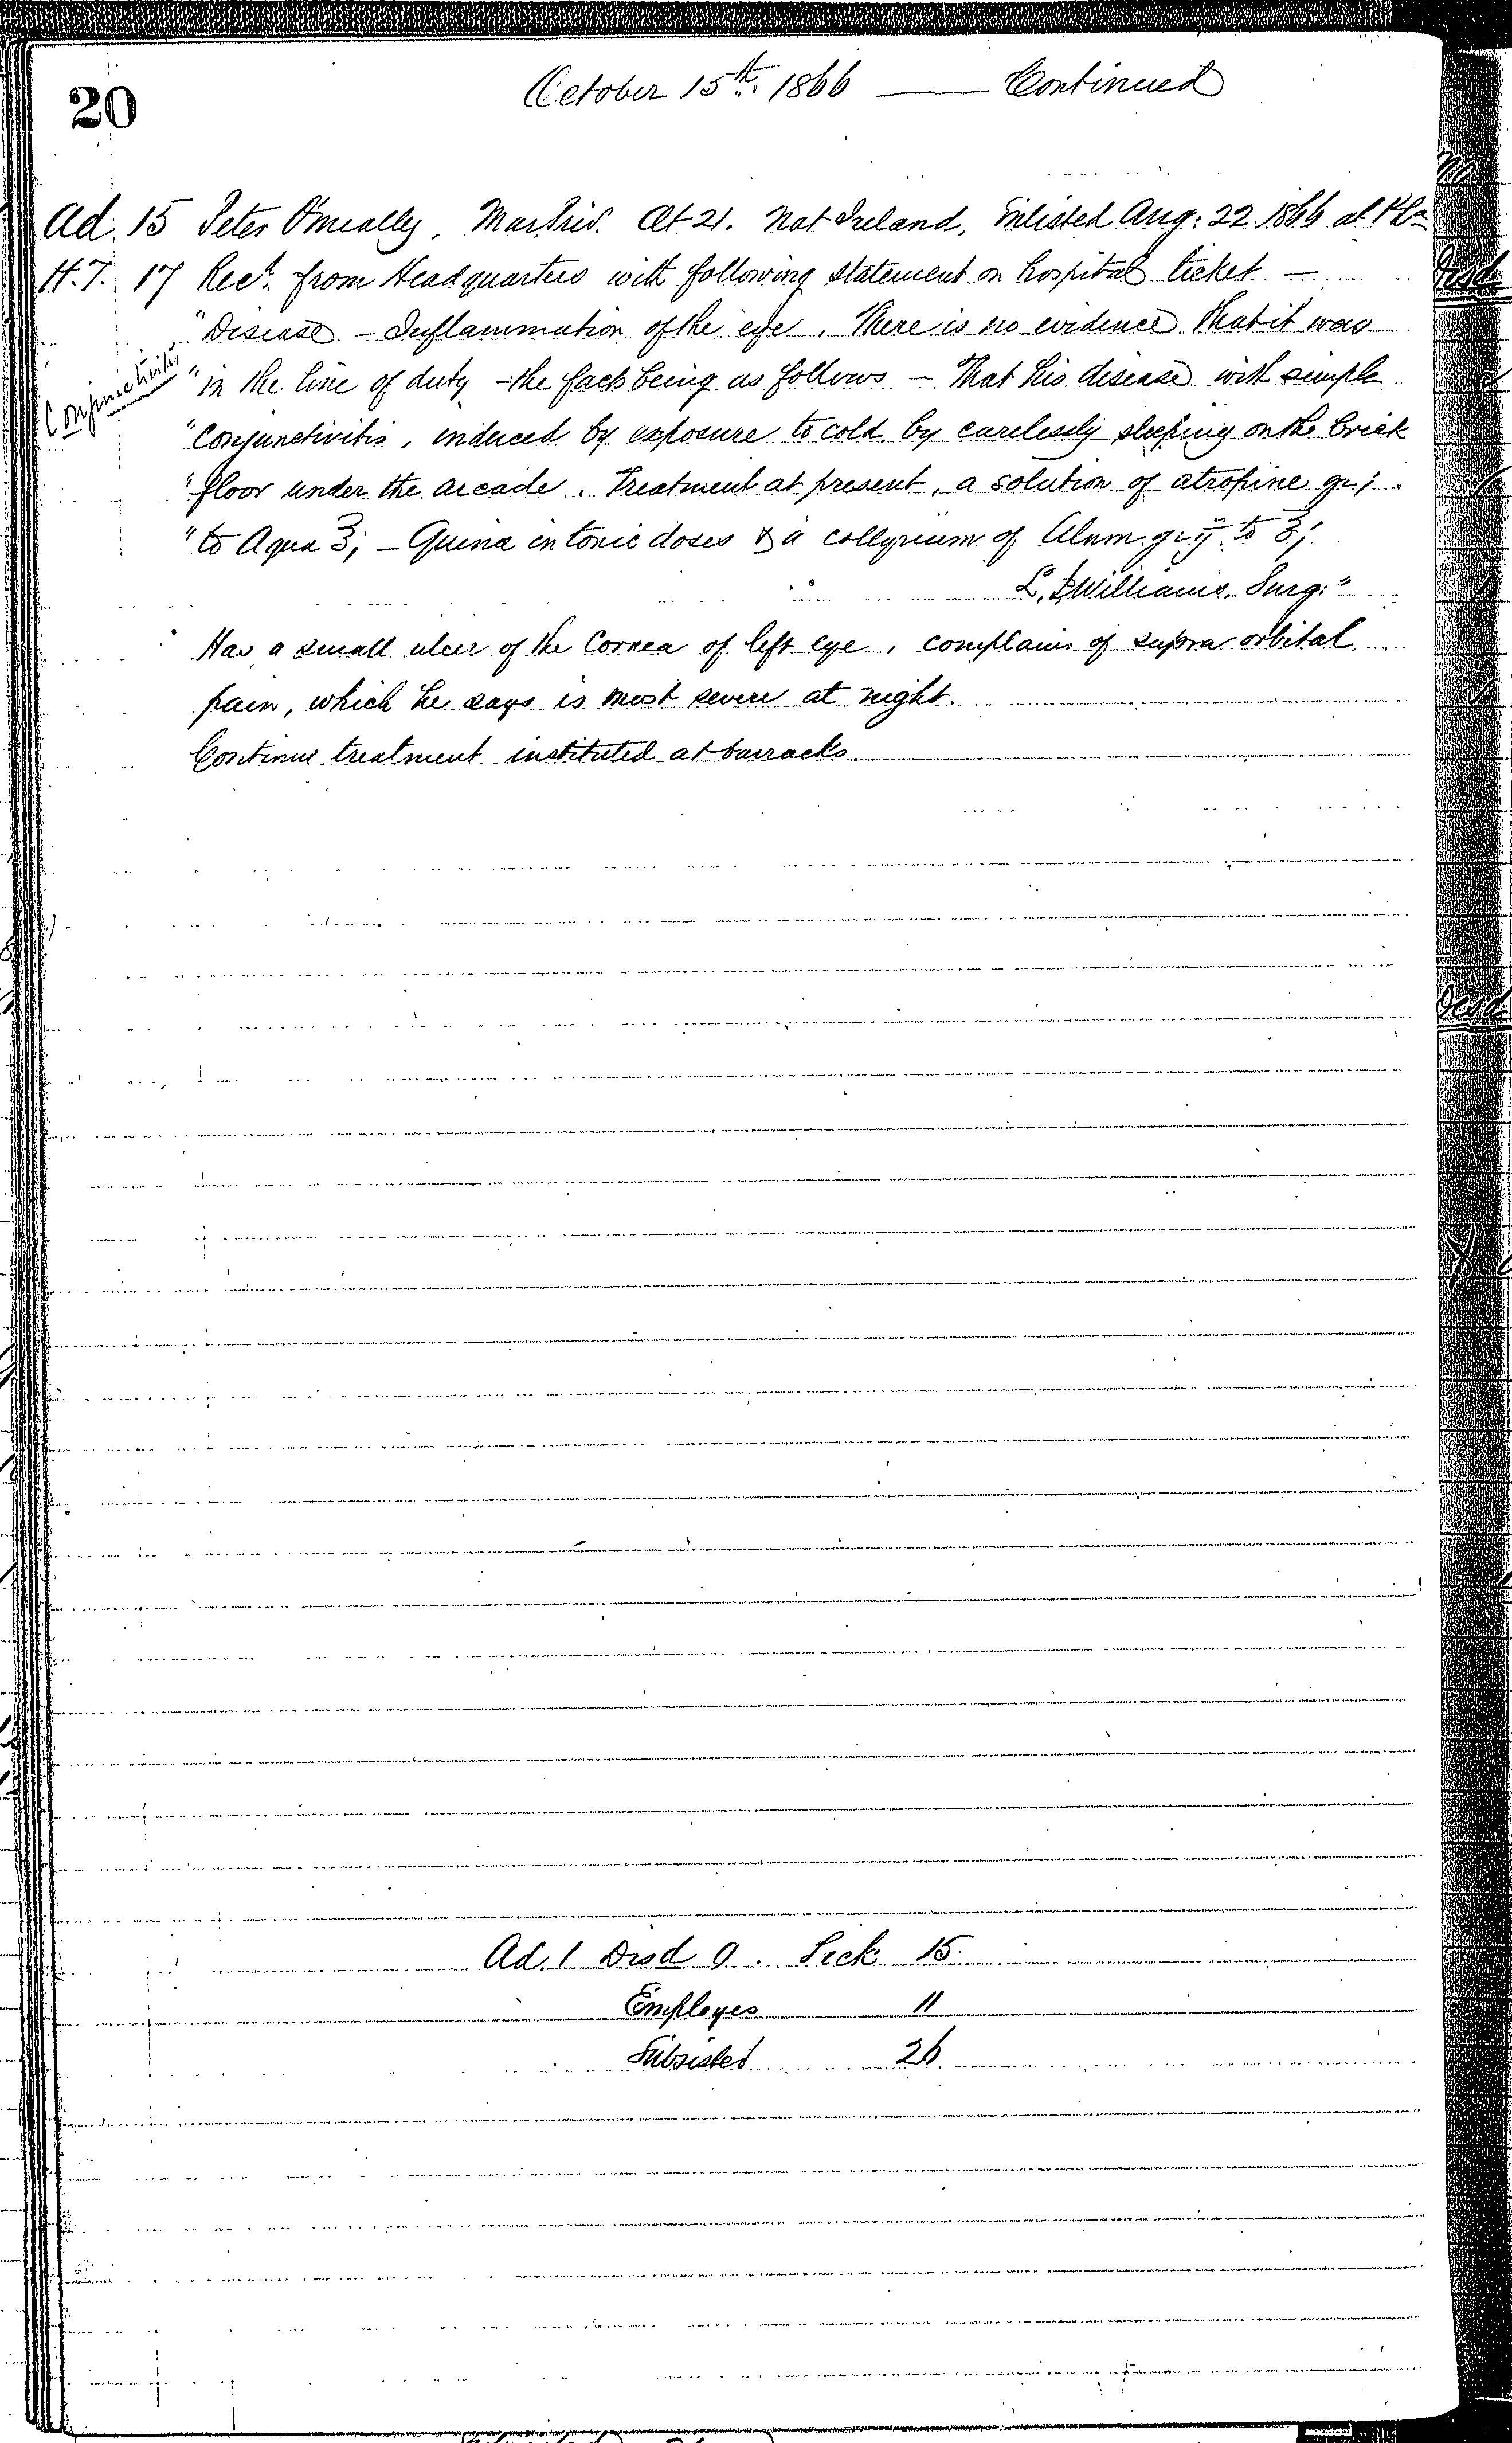 20
October 15th. 1866 —— Continued
Ad. 15 Peter O'meally, Mar Priv. Æt 21. Nat Ireland, Enlisted Aug: 22. 1866 at
H.T. 17 Recd. from Headquarters with following statement on hospital ticket —
"Disease — Inflammation of the eye. There is no evidence that it was
Conjunctivitis
"in the line of duty - the facts being as follows — That his disease with simple
"Conjunctivitis, induced by exposure to cold by carelessly sleeping on the brick
"floor under the arcade. Treatment at present, a solution of atropine gr j.
"to Aqua ℥j — Quina in tonic doses & a collyrium of Alum gr ij to ℥j.
Williams. Surg:"
Has a small ulcer of the Cornea of left eye, complains of supra orbital
pain, which he says is most severe at night.
Continue treatment instituted at barracks.
Ad. 1 Disd 0. Sick 15
Employes 11
Subsisted 26